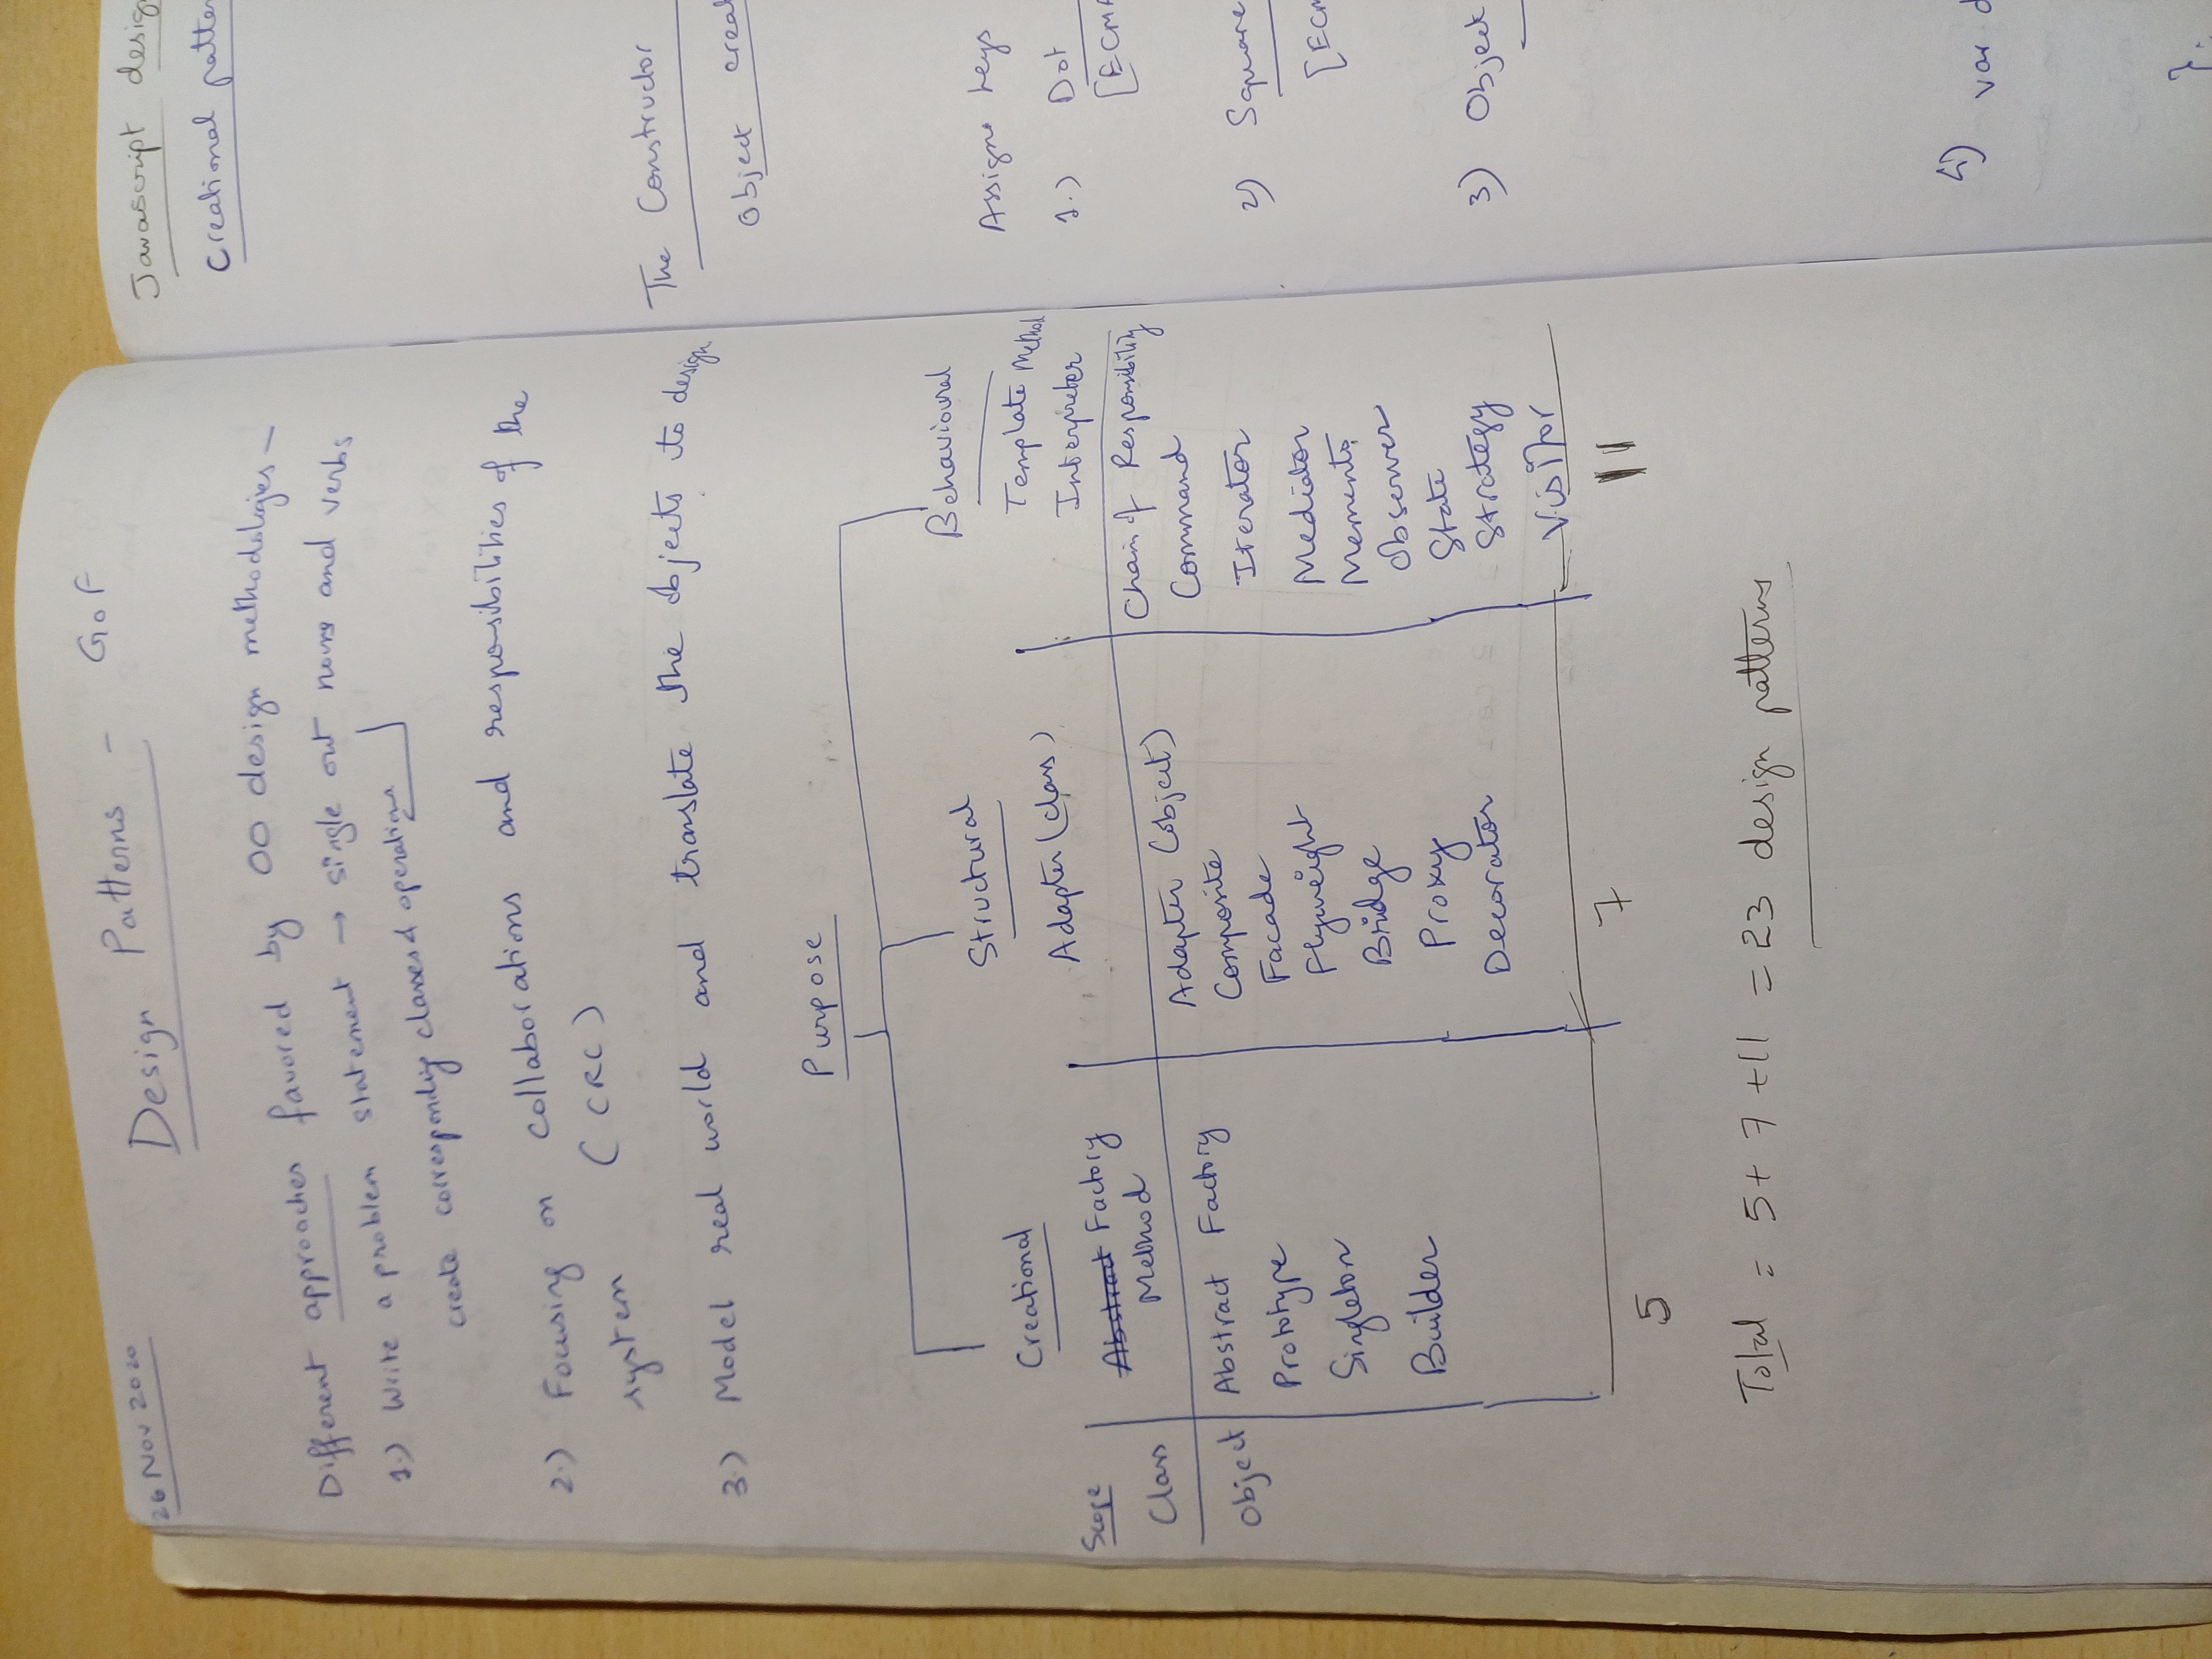 26 Nov 2020
Design Patterns - GoF
Different approaches favored by OO design methodologies -
1.) Write a problem statement → single out nouns and verbs
create corresponding classes & operations
2.) Focusing on collaborations and responsibilities of the
system (CRC)
3.) Model real world and translate the objects to design
Purpose
Creational Structural Behavioural
Scope
Class Abstract Factory Method Adapter (class) Template Method
Interpreter
Object Abstract Factory Adapter (object) Chain of Responsibility
Prototype Composite Command
Singleton Facade Iterator
Builder Flyweight Mediator
Bridge Memento
Proxy Observer
Decorator State
Strategy
Visitor
5 7 11
Total = 5 + 7 + 11 = 23 design patterns
Javascript design
Creational
The Constructor
Object
Assigne keys
1.) Dot
[ECMA
2) Square
3) Object
4) var
}.